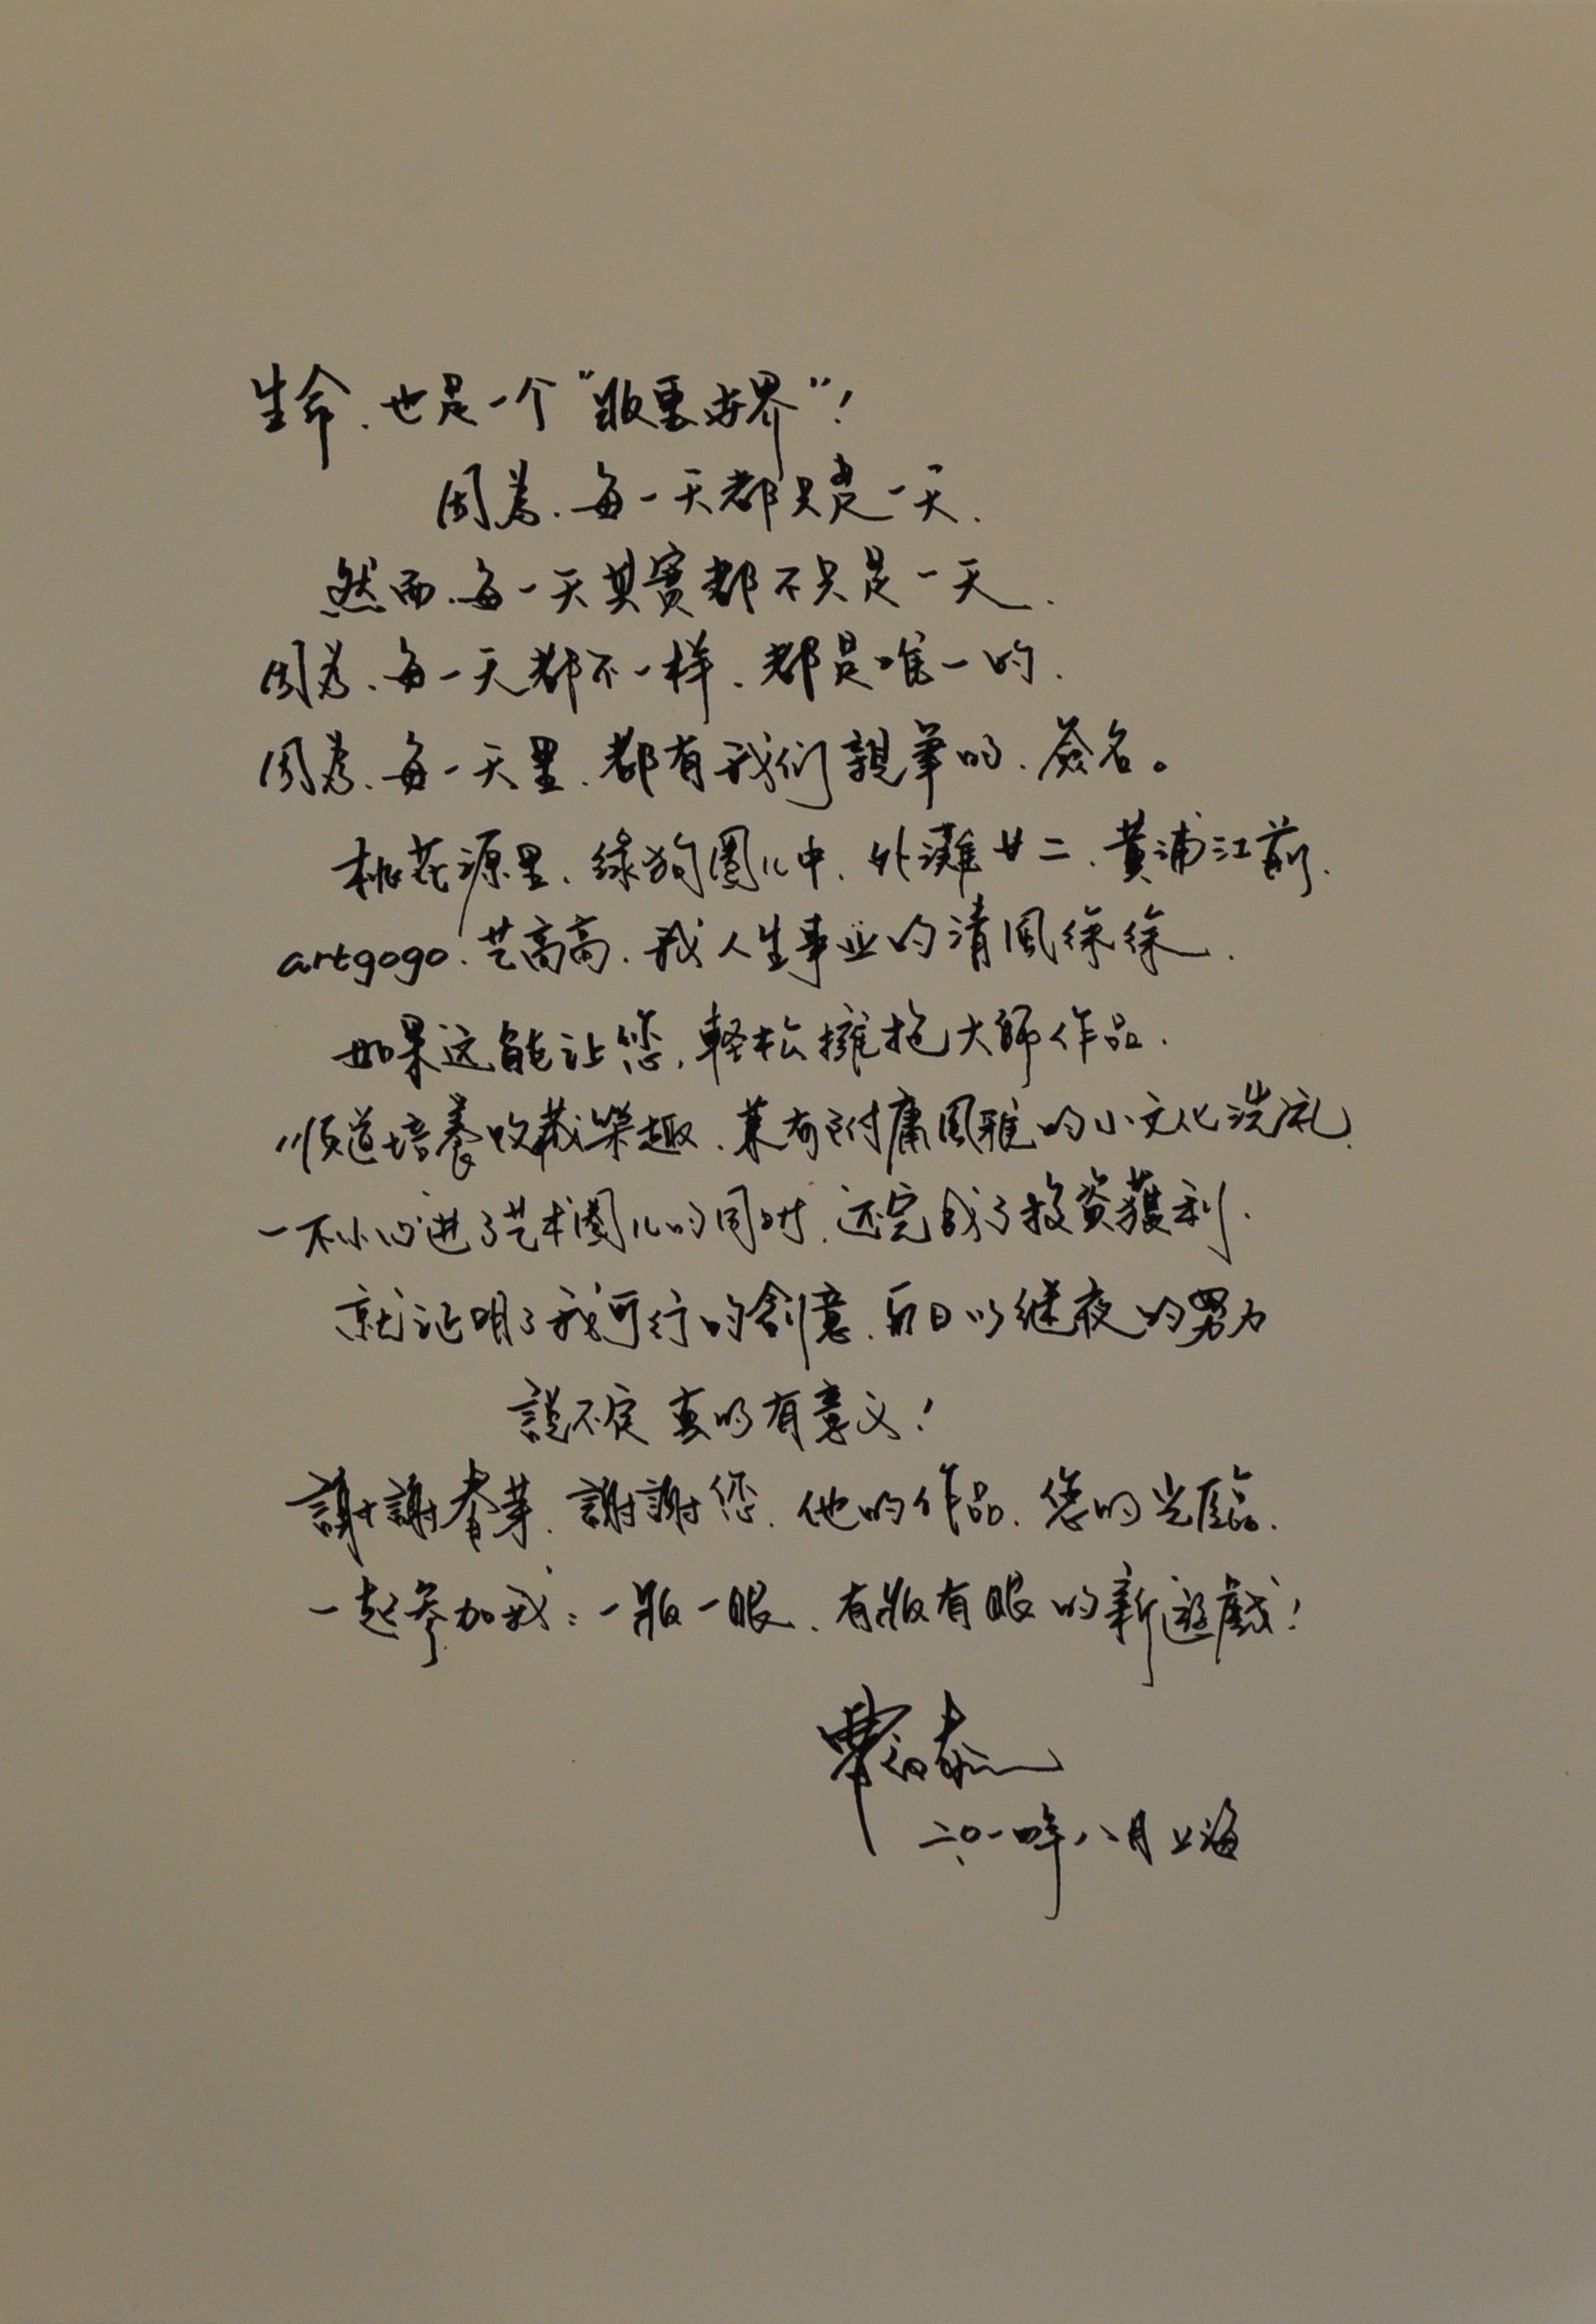 生命、也是一个“版里世界”！
因為、每一天都只是一天、
然而、每一天其實都不只是一天、
因為、每一天都不一样、都是唯一的、
因為、每一天里、都有我们親筆的、簽名。
桃花源里、綠狗圈儿中、外灘廿二、黄浦江前、
artgogo、艺高高、我人生事业的清風徐徐、
如果这能让您、軽松擁抱大師作品、
顺道培養收藏樂趣、兼有附庸風雅的小文化洗礼、
一不小心进了艺术圈儿的同时、还完成了投資獲利、
就证明了我可行的創意、和日以继夜的努力
說不定 真的有意义！
謝謝春芽、謝謝您、他的作品、您的光臨、
一起参加我：一版一眼、有版有眼的新遊戲！
曹啟泰
二〇一四年八月上海